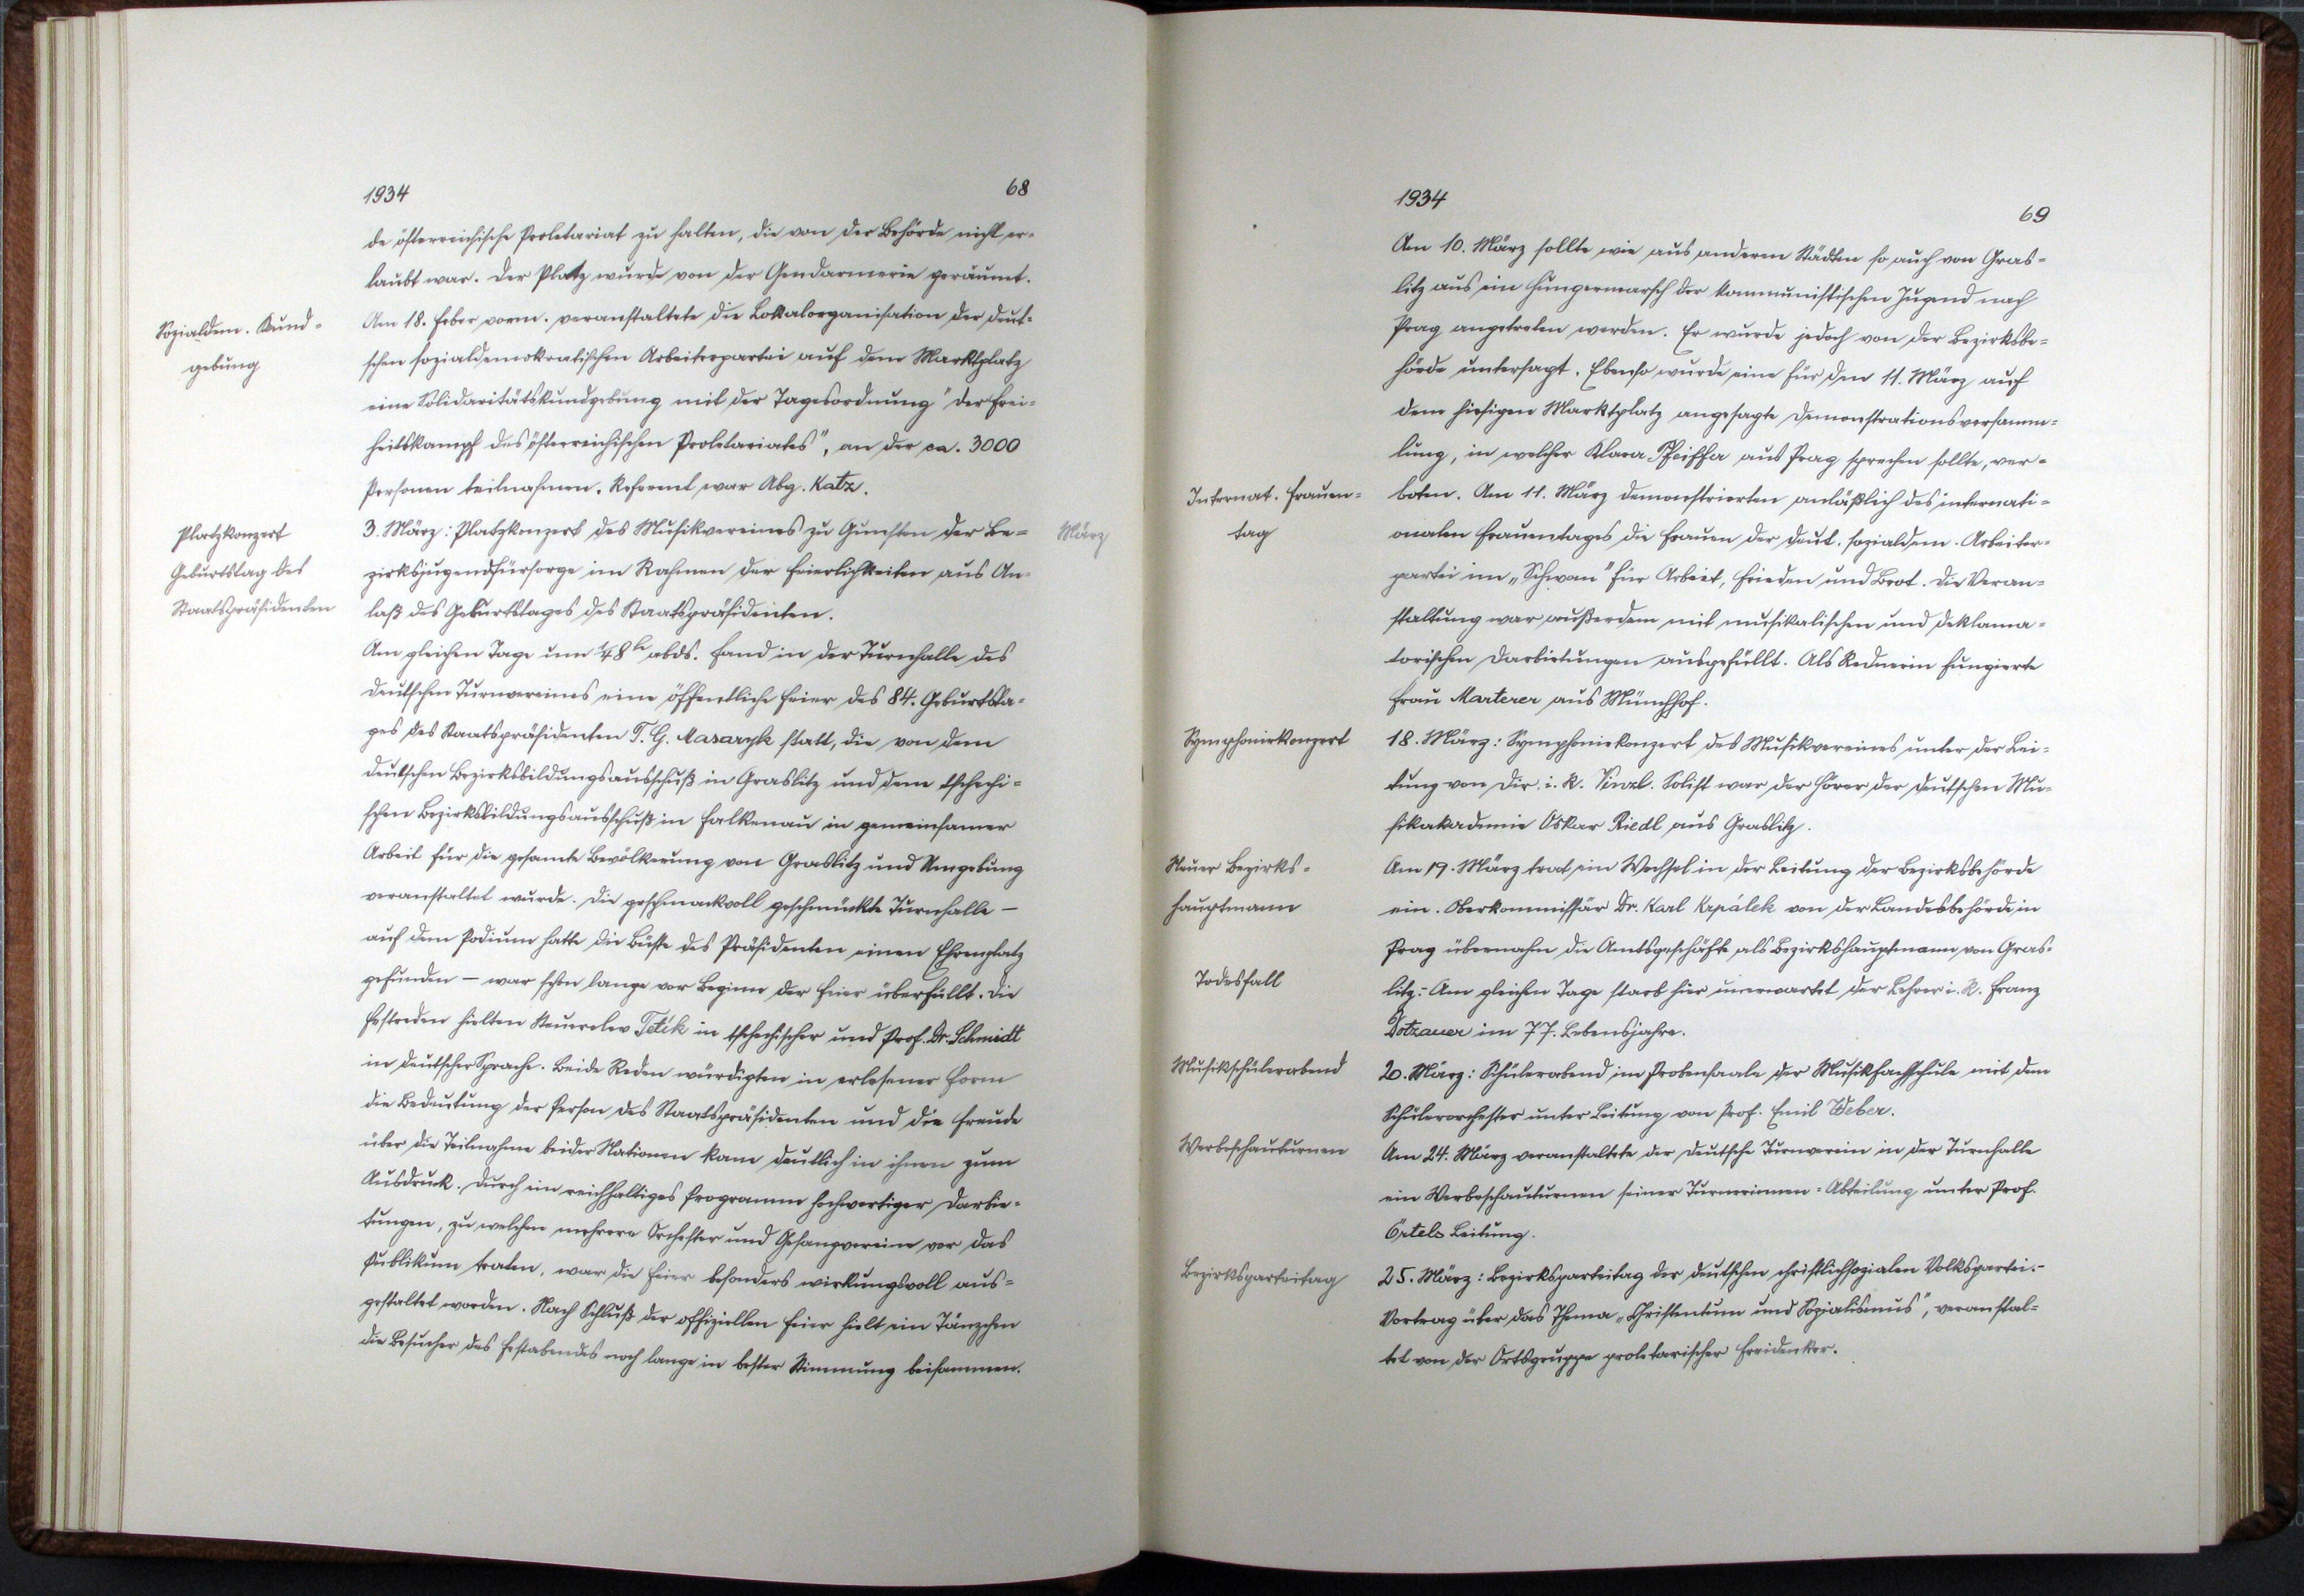 1934
68
de österreichische Proletariat zu halten, die von der Behörde nicht er-
laubt war. Der Platz wurde von der Gendarmerie geräumt.
Sozialdem. Kund-
gebung
Am 18. Feber vorm. veranstaltete die Lokalorganisation der deut-
schen sozialdemokratischen Arbeiterpartei auf dem Marktplatz
eine Solidaritätskundgebung mit der Tagesordnung "Der Frei-
heitskampf des österreichischen Proletariates", an der ca. 3000
Personen teilnahmen. Referent war Abg. Katz.
Platzkonzert
Geburtstag des
Staatspräsidenten
3. März: Platzkonzert des Musikvereines zu Gunsten der Be-
März
zirksjugendfürsorge im Rahmen der Feierlichkeiten aus An-
laß des Geburtstages des Staatspräsidenten.
Am gleichen Tage um ½8 h abds. fand in der Turnhalle des
deutschen Turnvereines eine öffentliche Feier des 84. Geburtsta-
ges des Staatspräsidenten T. G. Masaryk statt, die von dem
deutschen Bezirksbildungsausschuß in Graslitz und dem tschechi-
schen Bezirksbildungsausschuß in Falkenau in gemeinsamer
Arbeit für die gesamte Bevölkerung von Graslitz und Umgebung
veranstaltet wurde. Die geschmackvoll geschmückte Turnhalle —
auf dem Podium hatte die Büste des Präsidenten einen Ehrenplatz
gefunden — war schon lange vor Beginn der Feier überfüllt. Die
Festreden hielten Tetík in tschechischer und Prof. Dr. Schmidt
in deutscher Sprache. Beide Reden würdigten in erlesener Form
die Bedeutung der Person des Staatspräsidenten und die Freude
über die Teilnahme beider Nationen kam deutlich in ihnen zum
Ausdruck. Durch ein reichhaltiges Programm hochwertiger Darbie-
tungen, zu welchen mehrere Orchester und Gesangvereine vor das
Publikum traten, war die Feier besonders wirkungsvoll aus-
gestaltet worden. Nach Schluß der offiziellen Feier hielt ein Tänzchen
die Besucher des Festabendes noch lange in bester Stimmung beisammen.
1934
69
Am 10. März sollte wie aus anderen Städten so auch von Gras-
litz aus ein Hungermarsch der kommunistischen Jugend nach
Prag angetreten werden. Er wurde jedoch von der Bezirksbe-
hörde untersagt. Ebenso wurde eine für den 11. März auf
dem hiesigen Marktplatz angesagte Demonstrationsversamm-
lung, in welcher Klara Pfeiffer aus Prag sprechen sollte, ver-
Internat. Frauen-
tag
boten. Am 11. März demonstrierten anläßlich des internati-
onalen Frauentages die Frauen der deut. sozialdem. Arbeiter-
partei im „Schwan" für Arbeit, Frieden und Brot. Die Veran-
staltung war außerdem mit musikalischen und deklama-
torischen Darbietungen ausgefüllt. Als Rednerin fungierte
Frau Marterer aus Münchhof.
Symphoniekonzert
18. März: Symphoniekonzert des Musikvereines unter der Lei-
tung von Dir. i. R. Vinzl. Solist war der Hörer der deutschen Mu-
sikakademie Oskar Riedl aus Graslitz.
Neuer Bezirks-
hauptmann
Am 19. März trat ein Wechsel in der Leitung der Bezirksbehörde
ein. Oberkommissär Dr. Karl Krpálek von der Landesbehörde in
Prag übernahm die Amtsgeschäfte als Bezirkshauptmann von Gras-
Todesfall
litz.- Am gleichen Tage starb hier unerwartet der Lehrer i. R. Franz
Dotzauer im 77. Lebensjahre.
Musikschülerabend
20. März: Schülerabend im Probensaale der Musikfachschule mit dem
Schülerorchester unter Leitung von Prof. Emil Weber.
Werbeschauturnen
Am 24. März veranstaltete der deutsche Turnverein in der Turnhalle
ein Werbeschauturnen seiner Turnerinnen-Abteilung unter Prof.
Örtels Leitung.
Bezirksparteitag
25. März: Bezirksparteitag der deutschen christlichsozialen Volkspartei.-
Vortrag über das Thema „Christentum und Sozialismus", veranstal-
tet von der Ortsgruppe proletarischer Freidenker.